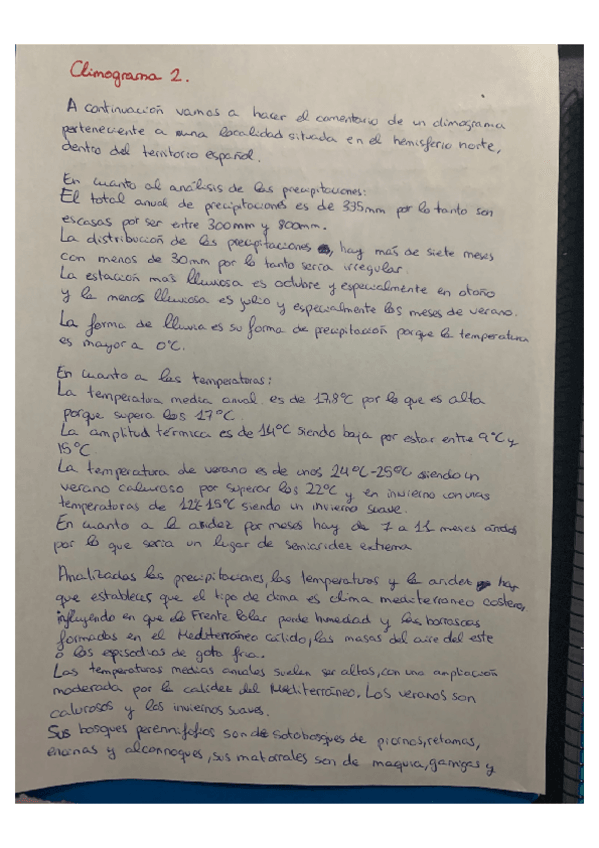 Climograma 2.
A continuación vamos a hacer el comentario de un climograma
perteneciente a una localidad situada en el hemisferio norte,
dentro del territorio español.
En cuanto al análisis de las precipitaciones:
El total anual de precipitaciones es de 335mm por lo tanto son
escasas por ser entre 300mm y 800mm.
La distribución de las precipitaciones, hay más de siete meses
con menos de 30mm por lo tanto sería irregular.
La estación más lluviosa es octubre y especialmente en otoño
y la menos lluviosa es julio y especialmente los meses de verano.
La forma de lluvia es su forma de precipitación porque la temperatura
es mayor a 0ºC.
En cuanto a las temperaturas:
La temperatura media anual es de 17.8ºC por lo que es alta
porque supera los 17ºC.
La amplitud térmica es de 14ºC siendo baja por estar entre 9ºC y
15ºC
La temperatura de verano es de unos 24ºC-25ºC siendo un
verano caluroso por superar los 22ºC y en invierno con unas
temperaturas de 12º 15ºC siendo un invierno suave.
En cuanto a la aridez por meses hay de 7 a 11 meses áridos
por lo que sería un lugar de semiaridez extrema
Analizadas las precipitaciones, las temperaturas y la aridez hay
que establecer que el tipo de clima es clima mediterraneo costero,
influyendo en que el Frente Polar pierde humedad y las borrascas
formadas en el Mediterráneo cálido, las masas del aire del este
o los episodios de gota fría.
Las temperaturas medias anuales suelen ser altas, con una ampliación
moderada por la calidez del Mediterráneo. Los veranos son
calurosos y los inviernos suaves.
Sus bosques perennifolios son de sotobosques de piornos, retamas,
encinas y alcornoques, sus matorrales son de maquia, garrigas y